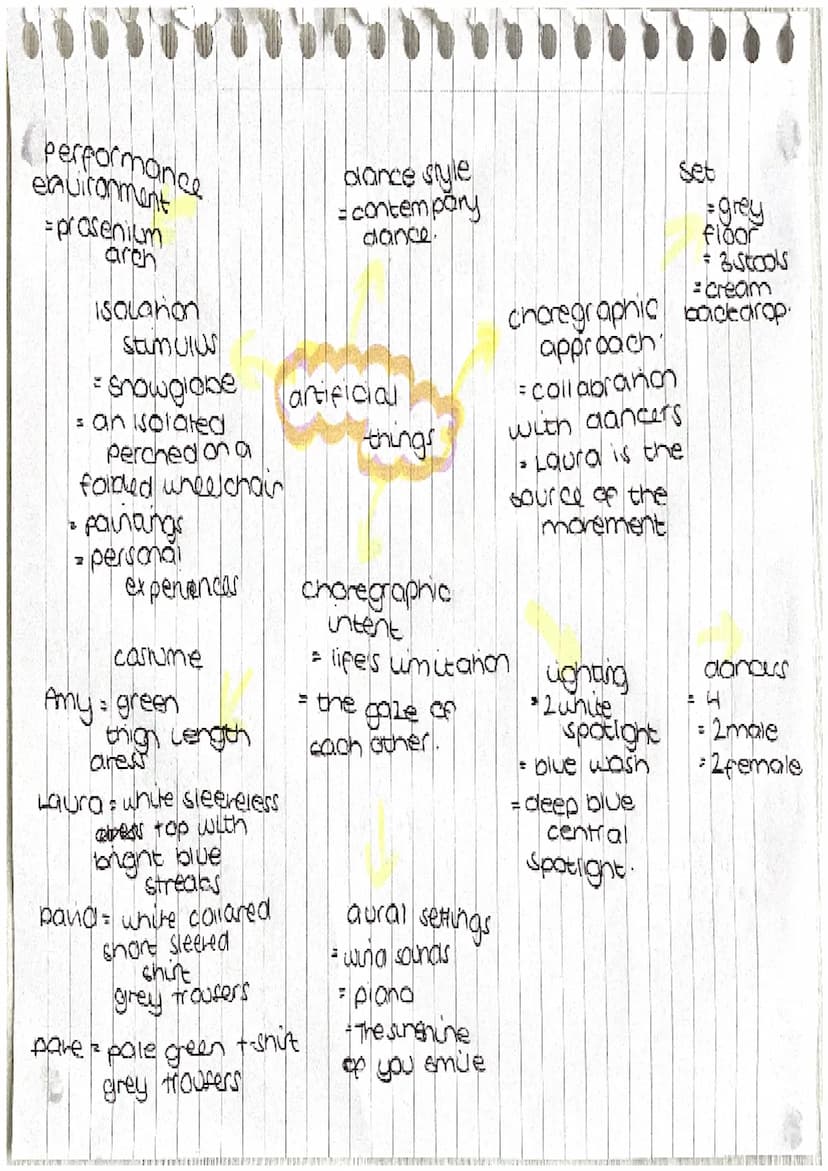 performance
environment
=prosenium
arch
dance style
=contempary
dance.
set
=grey
floor
= 3 stools
=cream
backdrop.
isolation
stimulus
= snowglobe
= an isolated
perched on a
folded wheelchair
= paintings
= personal
experiences
artificial
things
choregraphic
approach.
= collabration
with dancers
= Laura is the
source of the
movement
choregraphic
intent
= life's limitation
= the gaze of
each other.
costume
Amy = green
thigh length
dress
Laura = white sleeveless
top with
bright blue
streaks
David = white collared
short sleeved
shirt
grey trousers
Dave = pale green t-shirt
grey trousers
aural settings
= wind sounds
= piano
= The sunshine
op you smile
lighting
= 2 white
spotlight
= blue wash
= deep blue
central
spotlight.
dancers
= 4
= 2male
= 2female